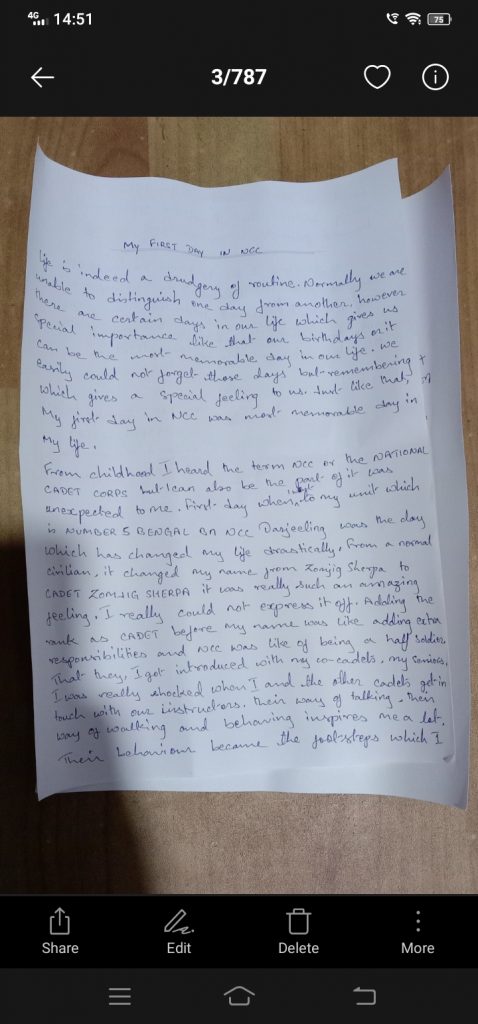 4G 14:51 75
3/787
MY FIRST DAY IN NCC
life is indeed a drudgery of routine. Normally we are
unable to distinguish one day from another, however
there are certain days in our life which gives us
special importance like that our birthdays or it
can be the most memorable day in our life. We
easily could not forget those days but remembering
which gives a special feeling to us. Just like that,
My first day in NCC was most memorable day in
My life.
From childhood I heard the term NCC or the NATIONAL
CADET CORPS but I can also be the part of it was
unexpected to me. First day when to my unit which
is NUMBER 5 BENGAL BN NCC Darjeeling was the day
which has changed my life drastically. From a normal
civilian, it changed my name from Zomjig Sherpa to
CADET ZOMJIG SHERPA it was really such an amazing
feeling, I really could not express it off. Adding the
rank as CADET before my name was like adding extra
responsibilities and NCC was like of being a half soldier
That they, I got introduced with my co-cadets, my seniors,
I was really shocked when I and the other cadets get in
touch with our instructors. their way of talking, their
way of walking and behaving inspires me a lot.
Their behaviour became the foot-steps which I
Share Edit Delete More